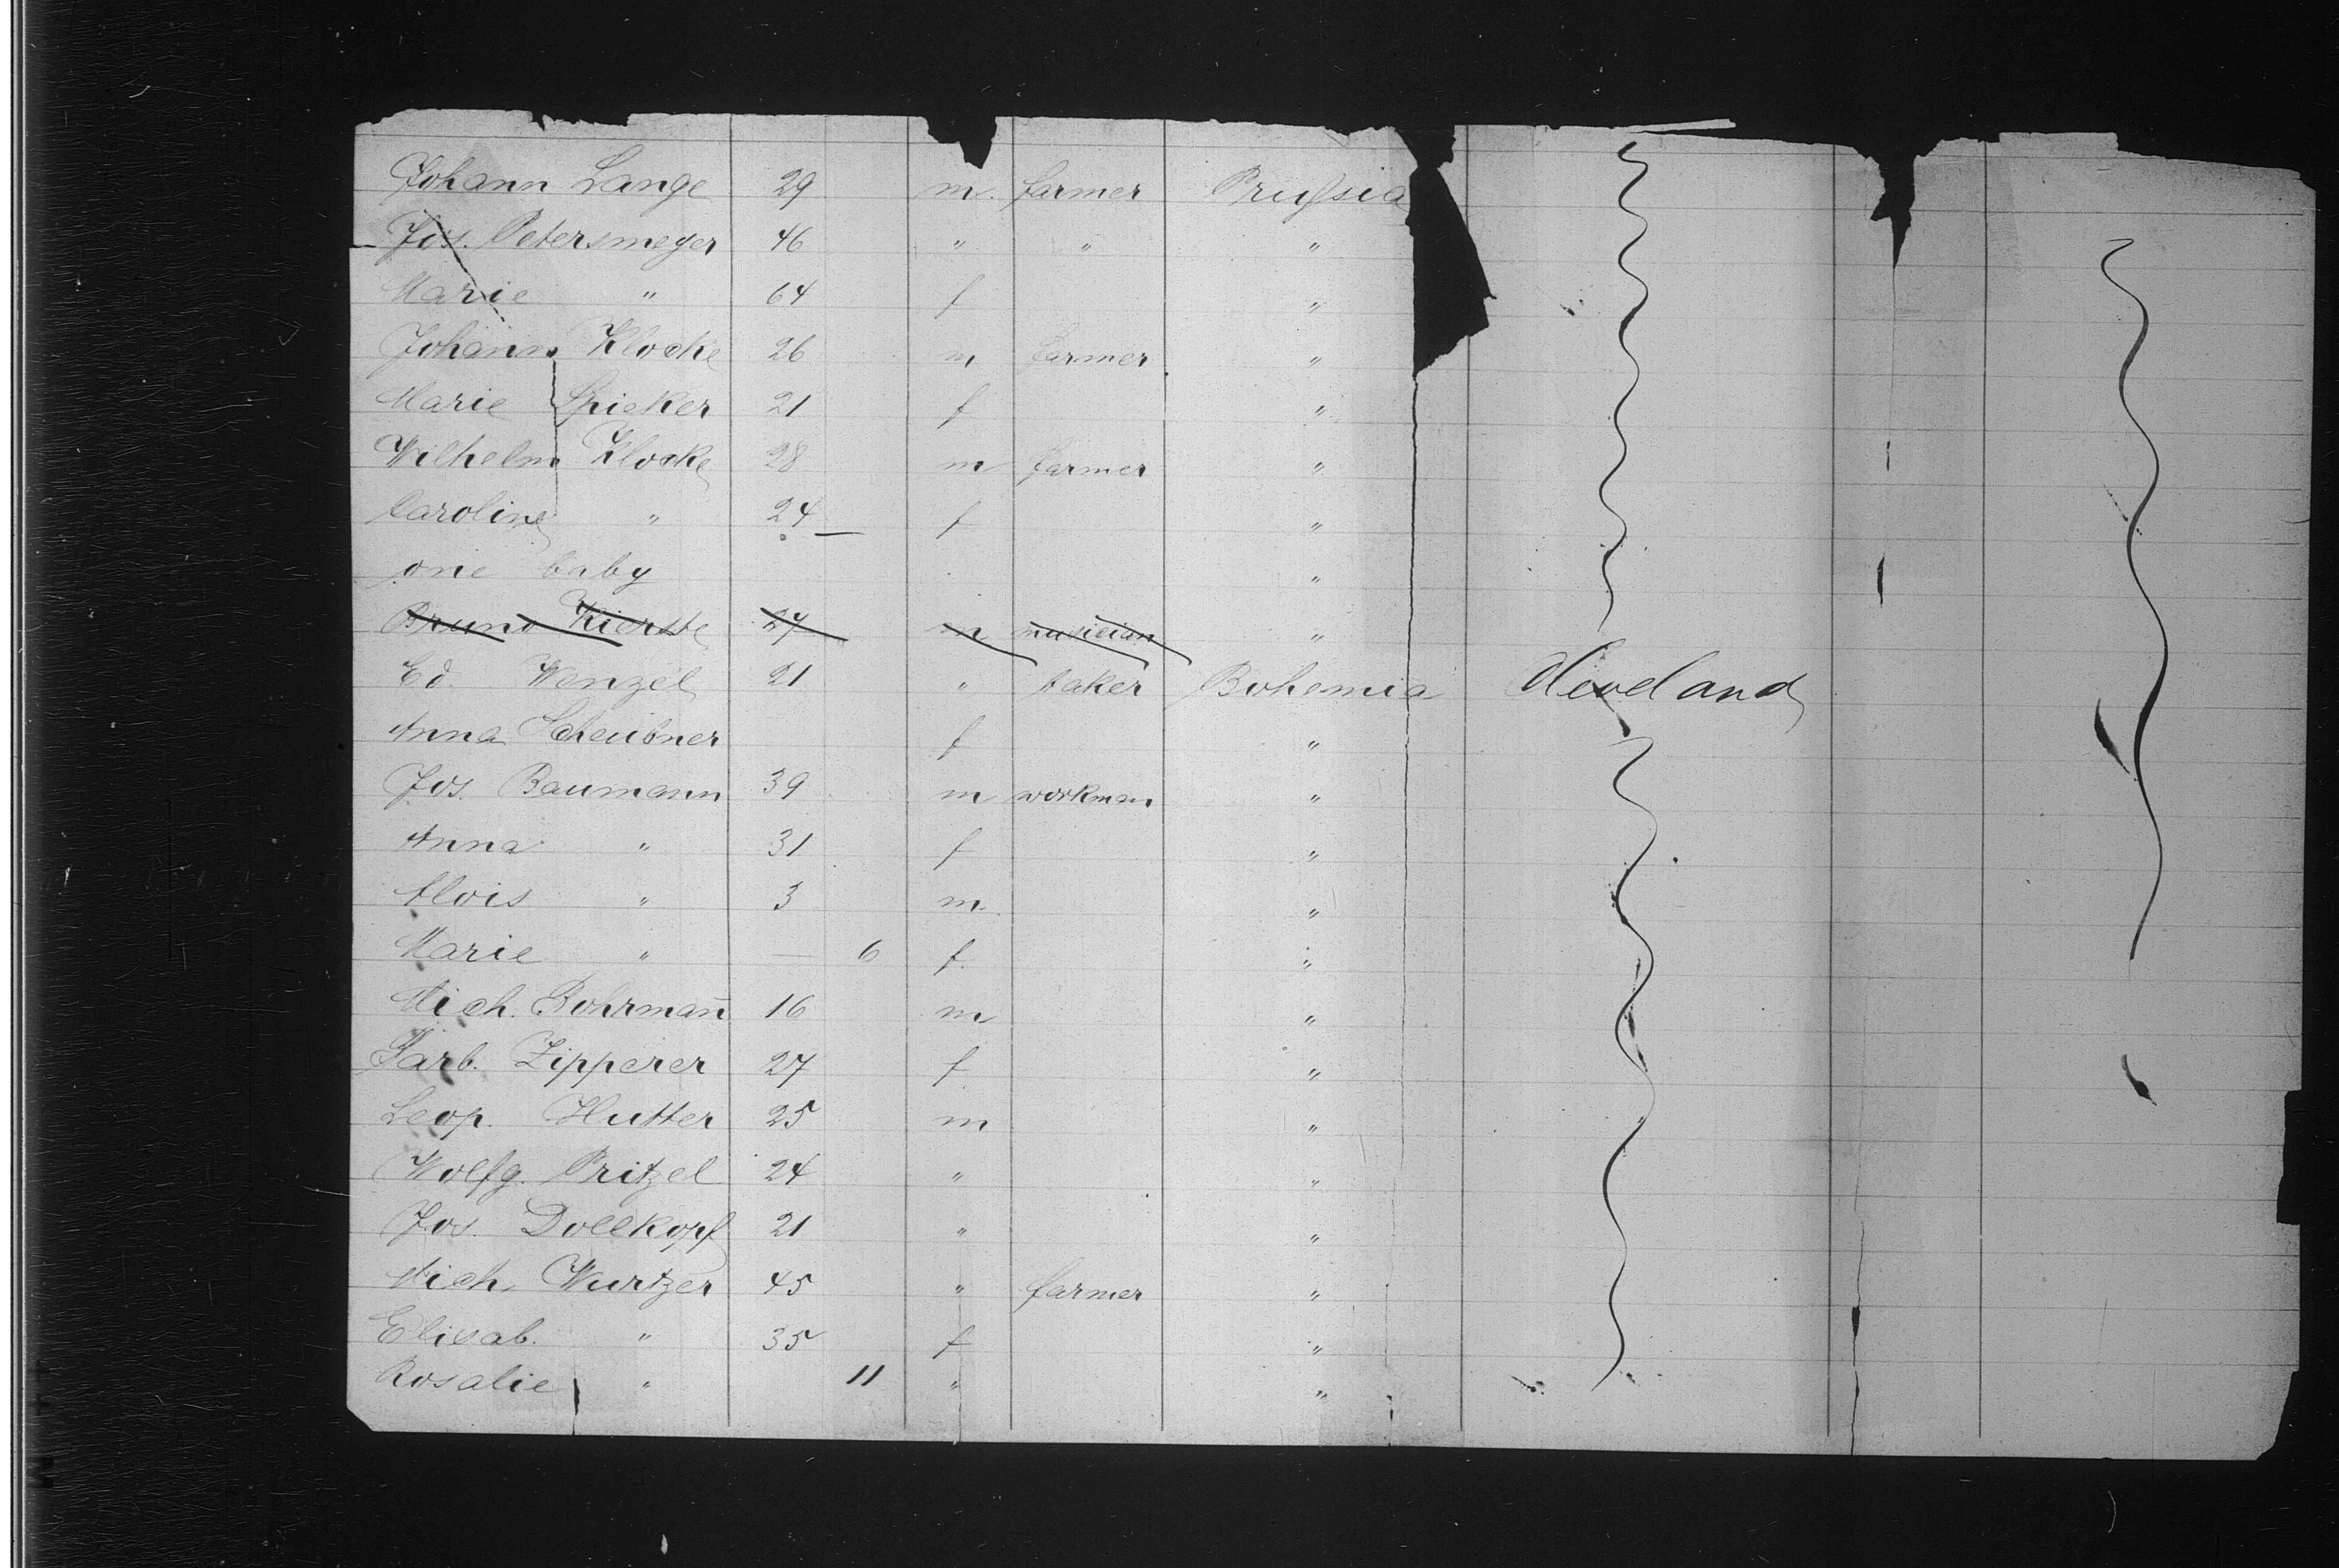 Johann Lange 29 m. farmer Prussia
Jos. Petersmeyer 46 " " "
Marie " 64 f "
Johann Klocke 26 m farmer "
Marie Spieker 21 f "
Wilhelm Klocke 28 m farmer "
Caroline " 24 — f "
one baby "
Bruno Kierste 27 m musician "
Ed. Wenzel 21 " baker Bohemia Cleveland
Anna Scheibner f "
Jos. Baumann 39 m workman "
Anna " 31 f "
Alois " 3 m. "
Marie " — 6 f. "
Mich. Bohrmañ 16 m "
Barb. Zipperer 27 f "
Leop. Hutter 25 m "
Wolfg. Pritzel 24 " "
Jos. Dollkopf 21 " "
Mich. Wurtzer 45 " farmer "
Elisab. " 35 f "
Rosalie " 11 " "